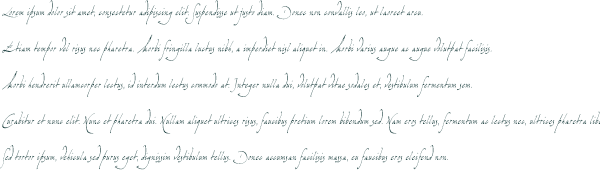 Lorem ipsum dolor sit amet, consectetur adipiscing elit. Suspendisse ut justo diam. Donec non convallis leo, ut laoreet arcu.
Etiam tempor vel risus nec pharetra. Morbi fringilla luctus nibh, a imperdiet nisl aliquet in. Morbi varius augue ac augue volutpat facilisis.
Morbi hendrerit ullamcorper lectus, id interdum lectus commodo at. Integer nulla dui, volutpat vitae sodales et, vestibulum fermentum sem.
Curabitur et nunc elit. Nunc et pharetra dui. Nullam aliquet ultrices risus, faucibus pretium lorem bibendum sed. Nam eros tellus, fermentum ac lectus nec, ultrices pharetra
Sed tortor ipsum, vehicula sed purus eget, dignissim vestibulum tellus. Donec accumsan facilisis massa, eu faucibus eros eleifend non.